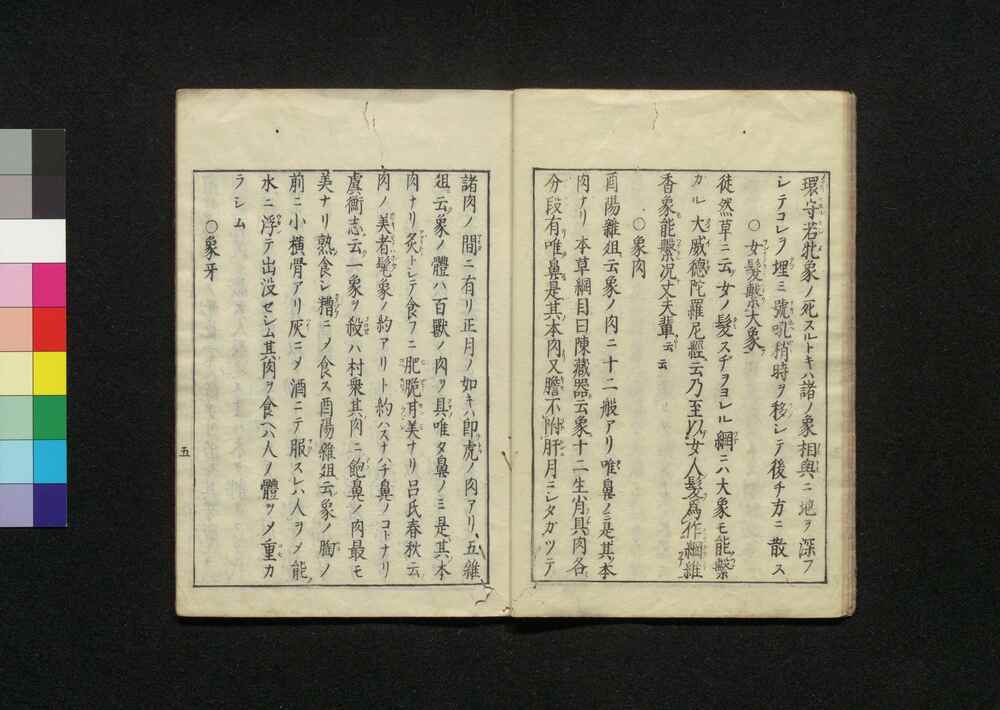 環守若牝象ノ死スルトキハ諸ノ象相與ニ地ヲ深フ
シテコレヲ埋ミ號吼稍時ヲ移シテ後チ方ニ散ス
○女髮繫大象
徒然草ニ云女ノ髮スヂヲヨレル綱ニハ大象モ能繫
カル大威德陀羅尼經云乃至以女人髮爲作綱維
香象能繫況丈夫輩云云
○象肉
酉陽雜俎云象ノ肉ニ十二般アリ唯鼻ノミ是其本
肉アリ本草綱目曰陳藏器云象十二生肖具肉各
分段有唯鼻是其本肉又膽不附肝月ニシタガツテ
諸肉ノ間ニ有リ正月ノ如キハ卽虎ノ肉アリ五雜
俎云象ノ體ハ百獸ノ肉ヲ具唯タ鼻ノミ是其本
肉ナリ炙トシテ食フニ肥脆甘美ナリ呂氏春秋云
肉ノ美者髦象ノ約アリト約ハスナハチ鼻ノコトナリ
虞衡志云一象ヲ殺ハ村衆其肉ニ飽鼻ノ肉最モ
美ナリ熟食シ糟ニメ食ス酉陽雜俎云象ノ胸ノ
前ニ小橫骨アリ灰ニメ酒ニテ服スレハ人ヲメ能
水ニ浮テ出没セシム其肉ヲ食ヘハ人ノ體ヲメ重カ
ラシム
○象牙
五